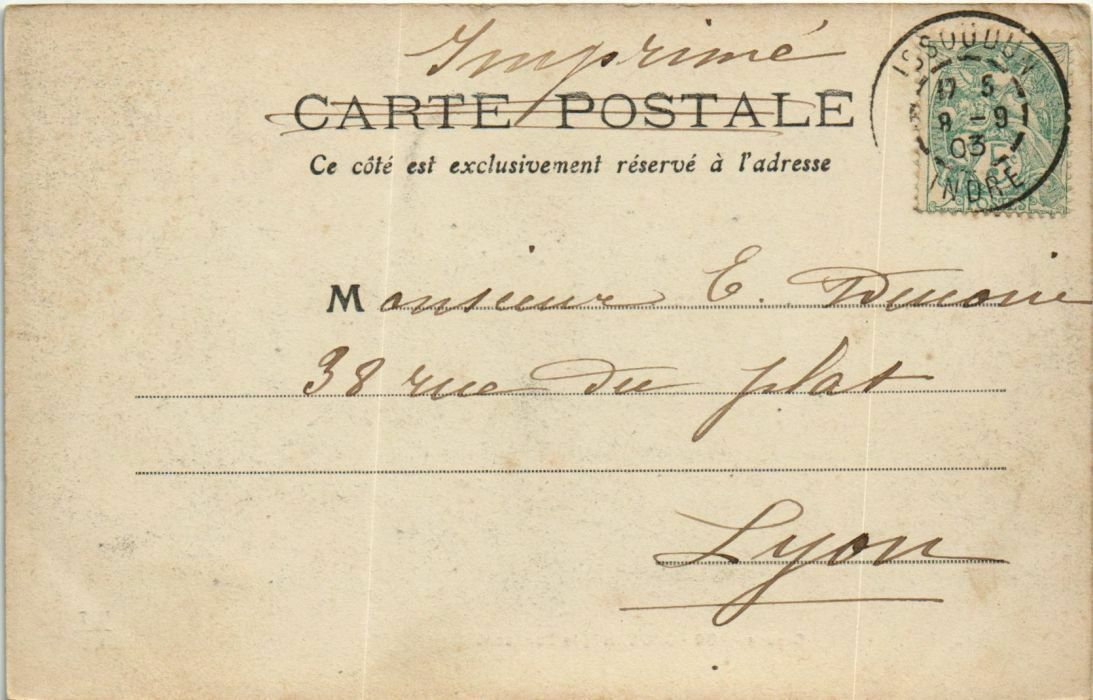 Imprimé
CARTE POSTALE
Ce côté est exclusivement réservé à l'adresse
ISSOUDUN
17 5
8 -9
03
INDRE
Monsieur E.
38 rue du plat
Lyon